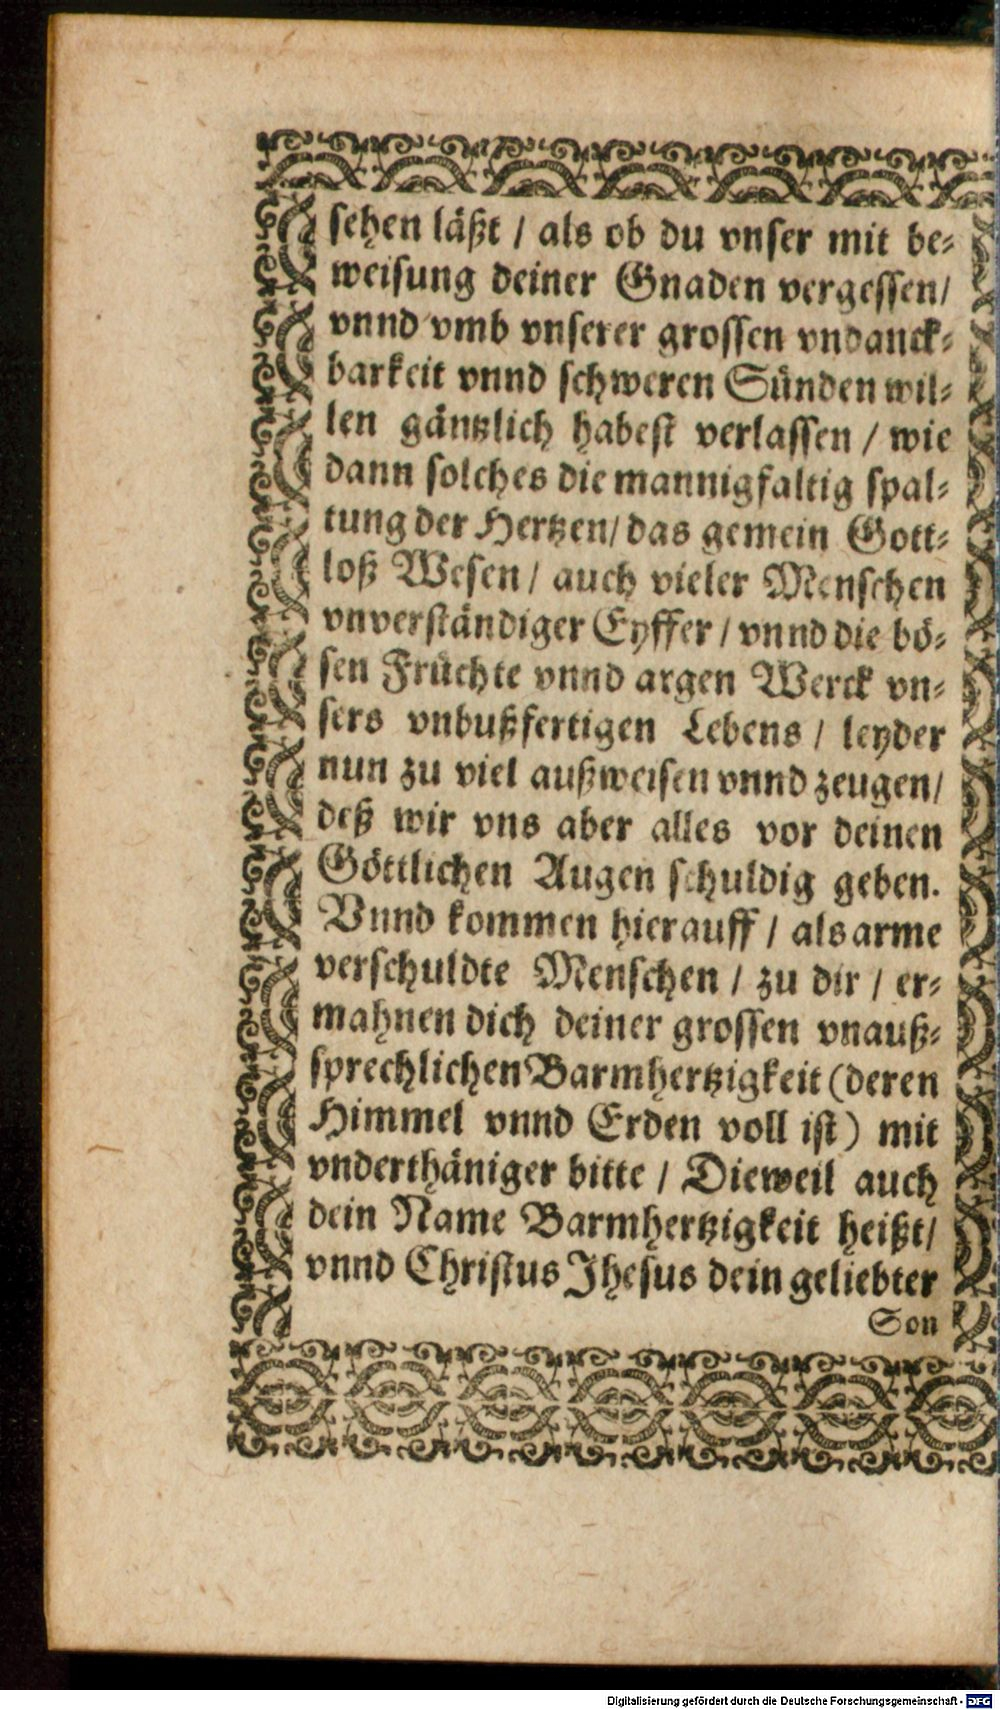 sehen läßt / als ob du vnser mit be-
weisung deiner Gnaden vergessen/
vnnd vmb vnserer grossen vndanck-
barkeit vnnd schweren Sünden wil-
len gäntzlich habest verlassen / wie
dann solches die mannigfaltig spal-
tung der Hertzen/ das gemein Gott-
loß Wesen / auch vieler Menschen
vnverständiger Eyffer / vnnd die bö-
sen Früchte vnnd argen Werck vn-
sers vnbußfertigen Lebens / leyder
nun zu viel außweisen vnnd zeugen/
deß wir vns aber alles vor deinen
Göttlichen Augen schuldig geben.
Vnnd kommen hierauff / als arme
verschuldte Menschen / zu dir / er-
mahnen dich deiner grossen vnauß-
sprechlichen Barmhertzigkeit (deren
Himmel vnnd Erden voll ist) mit
vnderthäniger bitte / Dieweil auch
dein Name Barmhertzigkeit heißt/
vnnd Christus Jhesus dein geliebter
Son
Digitalisierung gefördert durch die Deutsche Forschungsgemeinschaft - DFG